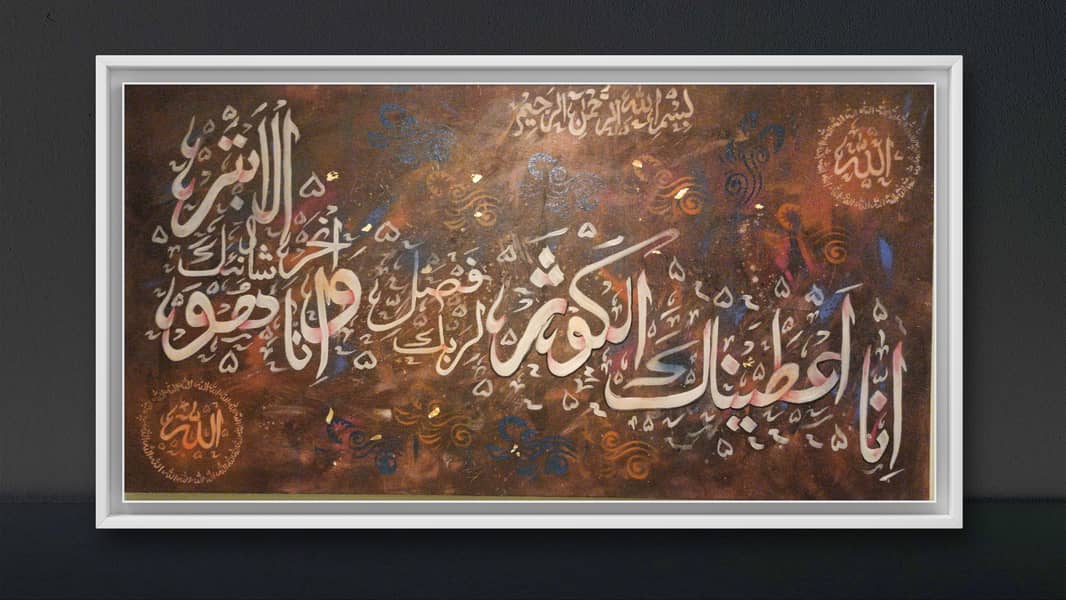 بِسْمِ اللهِ الرَّحْمٰنِ الرَّحِيْمِ
الله
اِنَّا اَعْطَيْنٰكَ الْكَوْثَرَ
فَصَلِّ لِرَبِّكَ وَانْحَرْ
اِنَّ شَانِئَكَ هُوَ الْاَبْتَرُ
الله